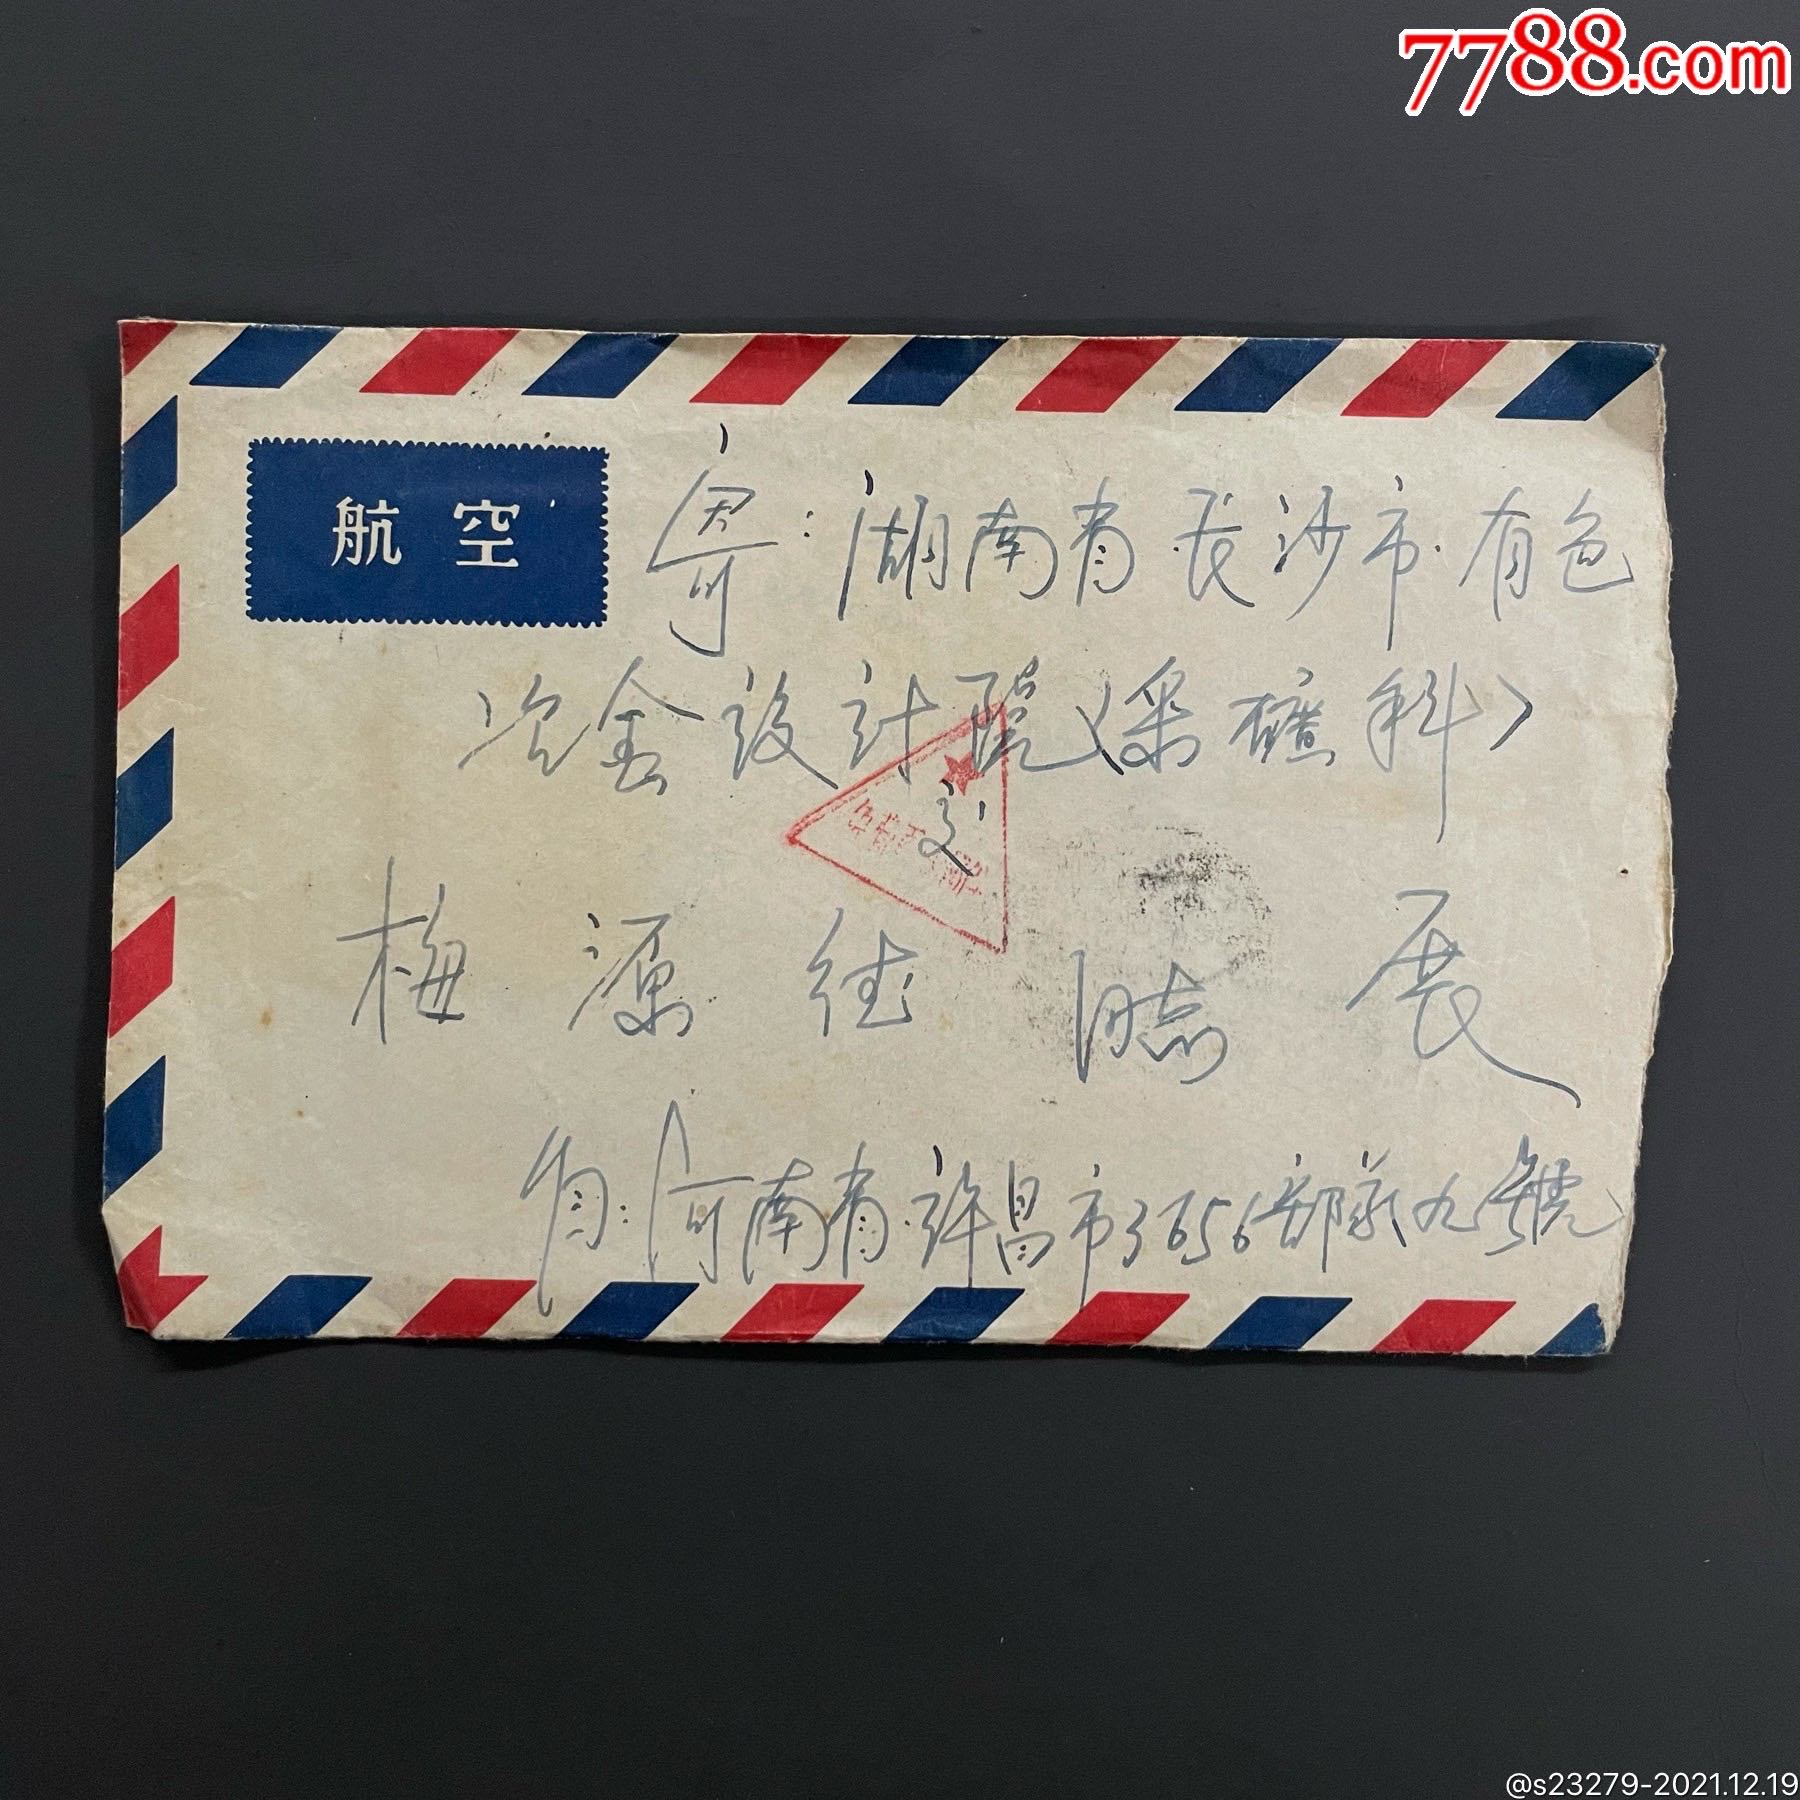 7788.com
航空
寄:湖南省长沙市有色
冶金设计院(采礦科)
交
梅源 临展
自:河南省许昌市3656部队九號
@s23279-2021.12.19